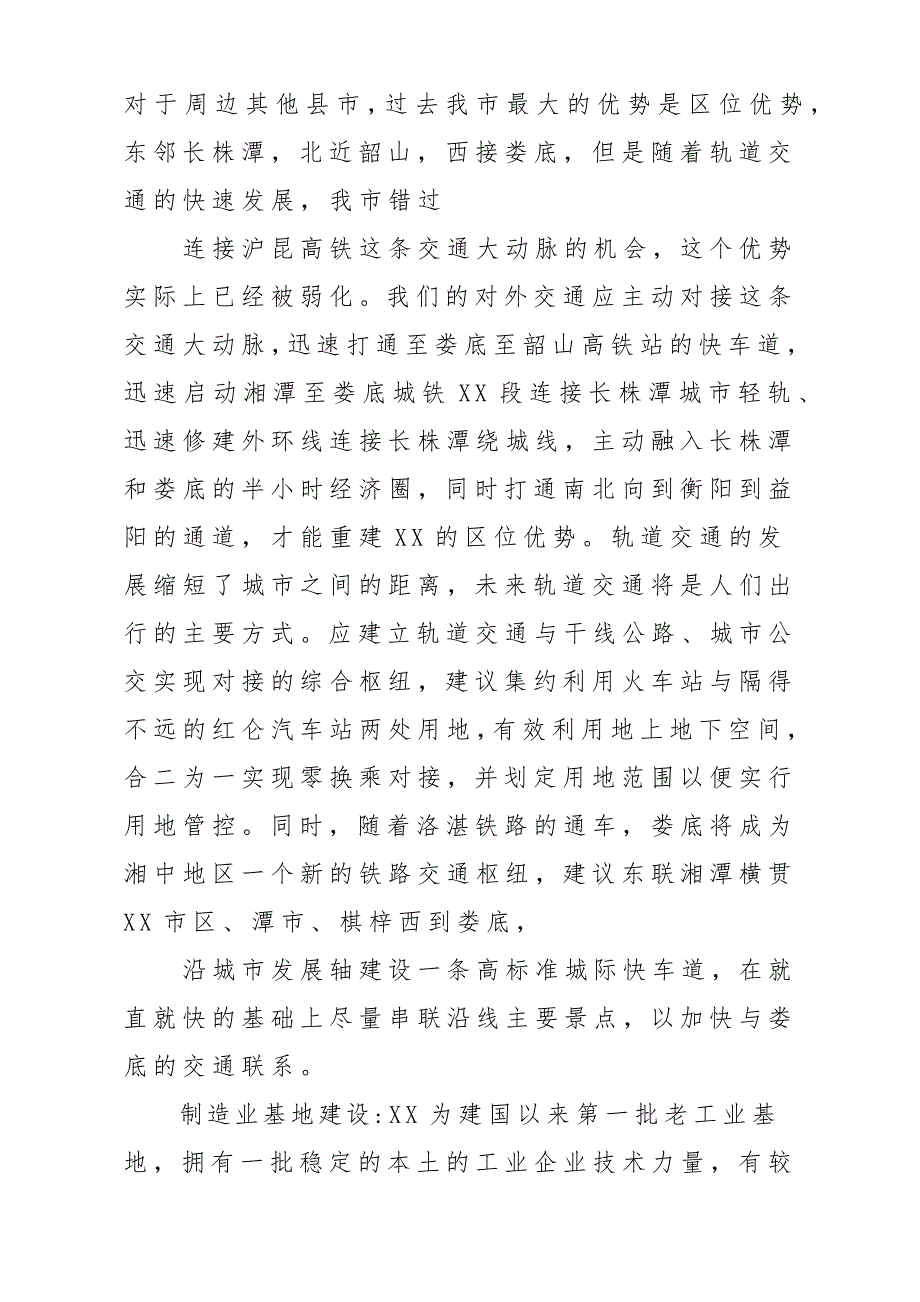 对于周边其他县市,过去我市最大的优势是区位优势,
东邻长株潭，北近韶山，西接娄底，但是随着轨道交
通的快速发展，我市错过
连接沪昆高铁这条交通大动脉的机会，这个优势
实际上已经被弱化。我们的对外交通应主动对接这条
交通大动脉,迅速打通至娄底至韶山高铁站的快车道,
迅速启动湘潭至娄底城铁 XX 段连接长株潭城市轻轨、
迅速修建外环线连接长株潭绕城线，主动融入长株潭
和娄底的半小时经济圈，同时打通南北向到衡阳到益
阳的通道，才能重建 XX 的区位优势。轨道交通的发
展缩短了城市之间的距离，未来轨道交通将是人们出
行的主要方式。应建立轨道交通与干线公路、城市公
交实现对接的综合枢纽，建议集约利用火车站与隔得
不远的红仑汽车站两处用地,有效利用地上地下空间,
合二为一实现零换乘对接，并划定用地范围以便实行
用地管控。同时，随着洛湛铁路的通车，娄底将成为
湘中地区一个新的铁路交通枢纽，建议东联湘潭横贯
XX 市区、潭市、棋梓西到娄底，
沿城市发展轴建设一条高标准城际快车道，在就
直就快的基础上尽量串联沿线主要景点，以加快与娄
底的交通联系。
制造业基地建设:XX 为建国以来第一批老工业基
地，拥有一批稳定的本土的工业企业技术力量，有较